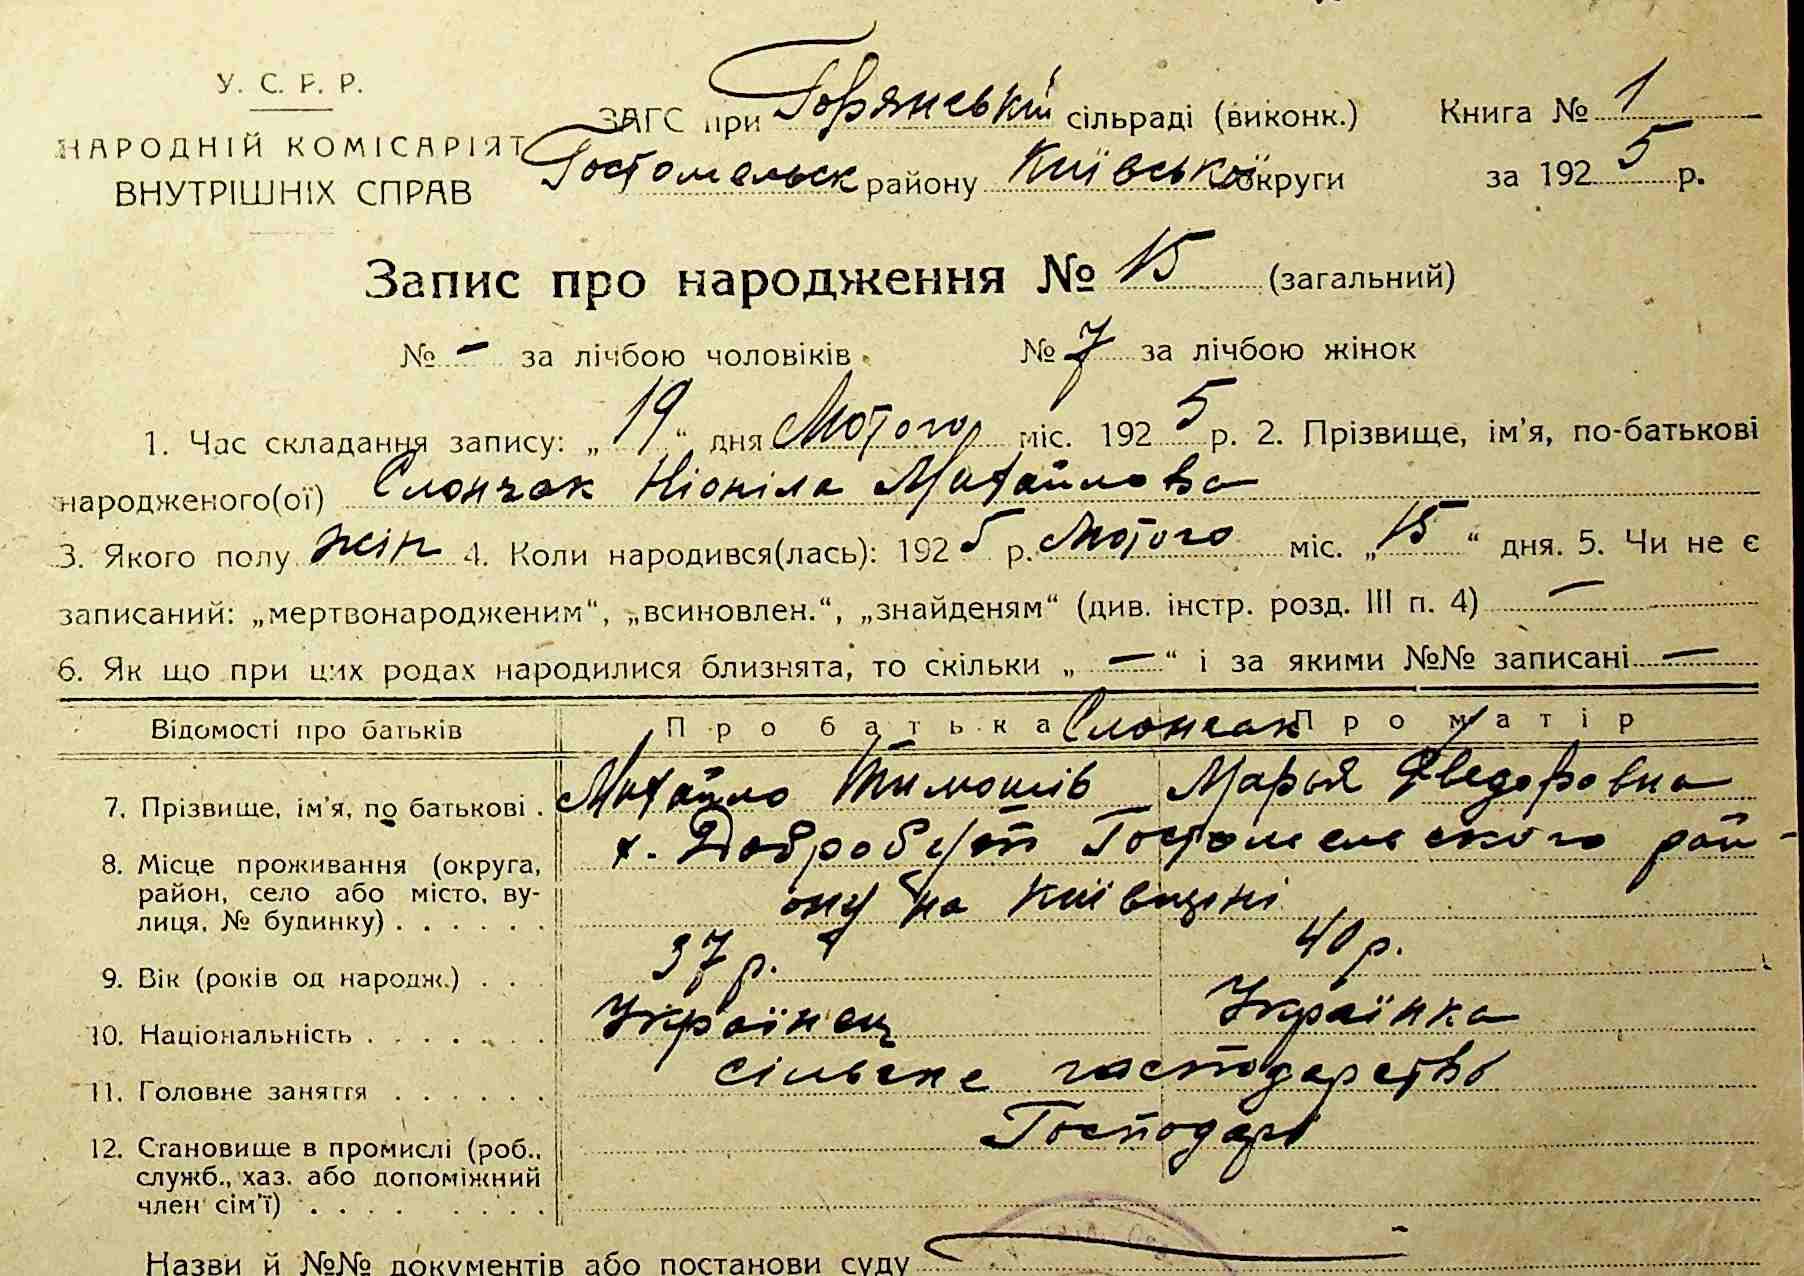 У. С. Р. Р.
НАРОДНІЙ КОМІСАРІЯТ
ВНУТРІШНІХ СПРАВ
ЗАГС при Горянській сільраді (виконк.) Книга № 1
Гостомельск району Київської округи за 1925 р.
Запис про народження № 15 (загальний)
№ – за лічбою чоловіків № 7 за лічбою жінок
1. Час складання запису: „19“ дня Лютого міс. 1925 р. 2. Прізвище, ім'я, по-батькові
народженого(ої) Слончак Ніоніла Михайлова
3. Якого полу жін 4. Коли народився(лась): 1925 р. Лютого міс. „15“ дня. 5. Чи не є
записаний: „мертвонародженим“, „всиновлен.“, „знайденям“ (див. інстр. розд. III п. 4) —
6. Як що при цих родах народилися близнята, то скільки „—“ і за якими №№ записані —
Відомості про батьків Про батька Про матір
Слончак
7. Прізвище, ім'я, по батькові . Михайло Тимошів Марья Фведоровна
8. Місце проживання (округа, х. Гостомельского рай-
район, село або місто, ву- ону на Київщині
лиця, № будинку) . . . . . .
9. Вік (років од народж.) . . . 37 р. 40 р.
10. Національність . . . . . . . Українец Українка
11. Головне заняття . . . . . . сільске господарство
12. Становище в промислі (роб., Господарі
служб., хаз. або допоміжний
член сім'ї) . . . . . . . .
Назви й №№ документів або постанови суду —